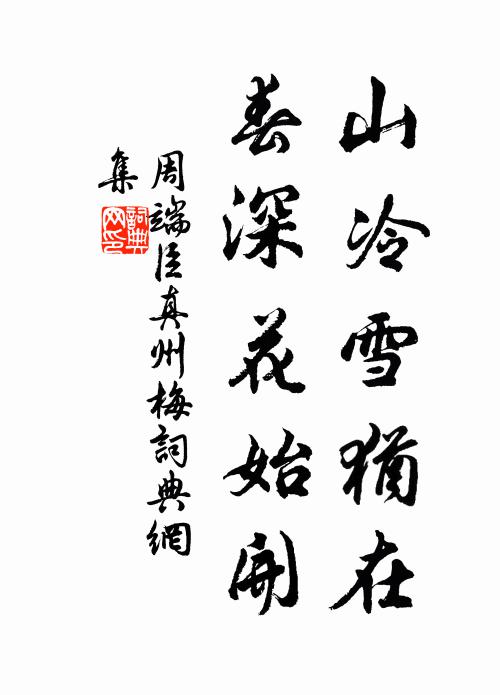 山冷雪猶在
春深花始開
周端臣真州梅詞典網
集
詞典
网印